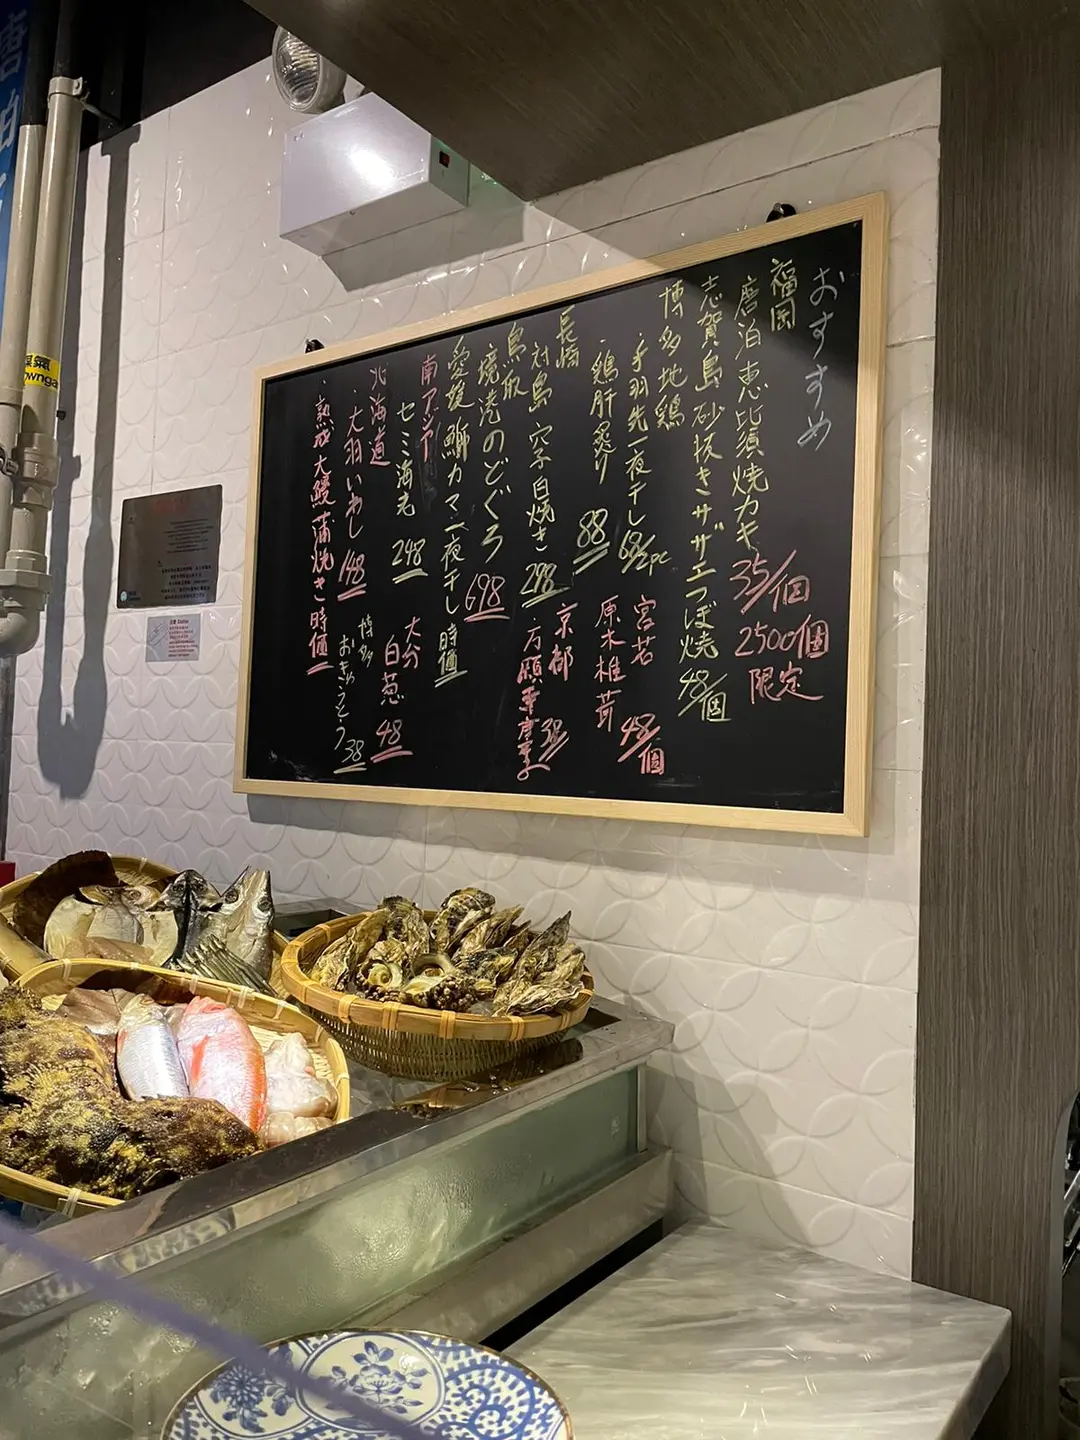 おすすめ
福岡
唐泊恵比須焼カキ 35/個
2500個
限定
志賀島砂抜きサザエつぼ焼 48/個
博多地鶏
・手羽先一夜干し 68/2pc
・鶏肝炙り 88
宮若
原木椎茸 48/個
長崎
対島 穴子白焼き 298
京都
・万願寺唐辛子 38
鳥取
・境港のどぐろ 698
愛媛鰤カマ一夜干し 時価
南アジア
セミ海老 248
大分
白葱 48
北海道
・大羽いわし 148
博多
おきゅうと 38
・熟成大鰻蒲焼き 時価
唐泊
煤氣
owngas